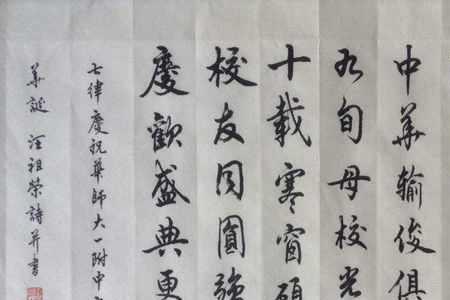 中華輸俊俱
九旬母校光
十載寒窗碩
校友同圓強
慶歡盛典更
七律慶祝華師大一附中
華誕 汪祖榮詩并書